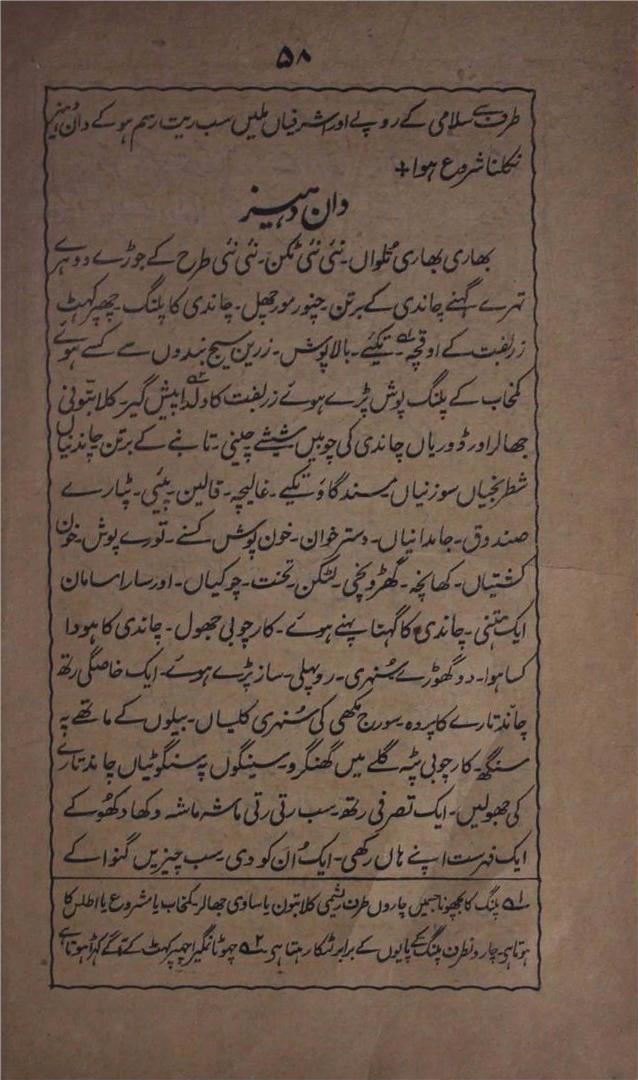 ۵۸
طرف سے سلامی کے روپے اور اشرفیاں ملیں سب ریت رسم ہو کے دان دہیز
نکلنا شروع ہوا +
دان دہیز
بھاری بھاری تُلواں۔ نئی نئی ٹکن۔ نئی نئی طرح کے جوڑے دوہرے
تہرے گہنے چاندی کے برتن۔ چنور مورچھل۔ چاندی کا پلنگ۔ چھپرکہٹ
زربفت کے اوقچہ ۱؎۔ تکیئے۔ بالاپوش۔ زرین سیج بندوں سے کسے ہوئے
کمخاب کے پلنگ پوش پڑے ہوئے زربفت کا دلدا پیش گیر ۲؎۔ کلابتونی
جھالر اور ڈوریاں چاندی کی چوبیں شیشے چینی۔ تانبے کے برتن۔ چاندنیاں
شطرنجیاں سوزنیاں مسند گاؤ تکیے۔ غالیچہ۔ قالین۔ پیٹی۔ پٹارے
صندوق۔ جامدانیاں۔ دسترخوان۔ خون پوش کسنے۔ تورے پوش۔ خون
کشتیاں۔ کھانچہ۔ گھڑونچی۔ لٹکن۔ تخت۔ چوکیاں۔ اور سارا سامان
ایک ہتنی۔ چاندی کا گہنا پہنے ہوئے۔ کارچوبی جھول۔ چاندی کا ہودا
کسا ہوا۔ دو گھوڑے سُنہری۔ روپہلی۔ ساز پڑے ہوئے۔ ایک خاصگی رتھ
چاند تارے کا پردہ۔ سورج مکھی کی سُنہری کلیاں۔ بیلوں کے ماتھے پہ
سنگھ۔ کارچوبی پٹہ گلے میں گھنگرو۔ سینگوں پہ سنگوٹیاں چاند تارے
کی جھولیں۔ ایک تصرفی رتھ۔ سب رتی رتی ماشہ ماشہ دکھا دکھو کے
ایک فہرست اپنے ہاں رکھی۔ ایک اُن کو دی۔ سب چیزیں گنوا کے
۱؎ پلنگ کا بچھونا جسمیں چاروں طرف ریشمی کلابتون یا ساوی جھالر۔ کمخاب یا مشروع یا اطلس کا
ہوتا ہی۔ چارونطرف پلنگ کے پایوں کے برابر لٹکا رہتا ہی ۲؎ چھوٹا نگیرا چھپرکہٹ کے آگے کھڑا ہوتا ہے